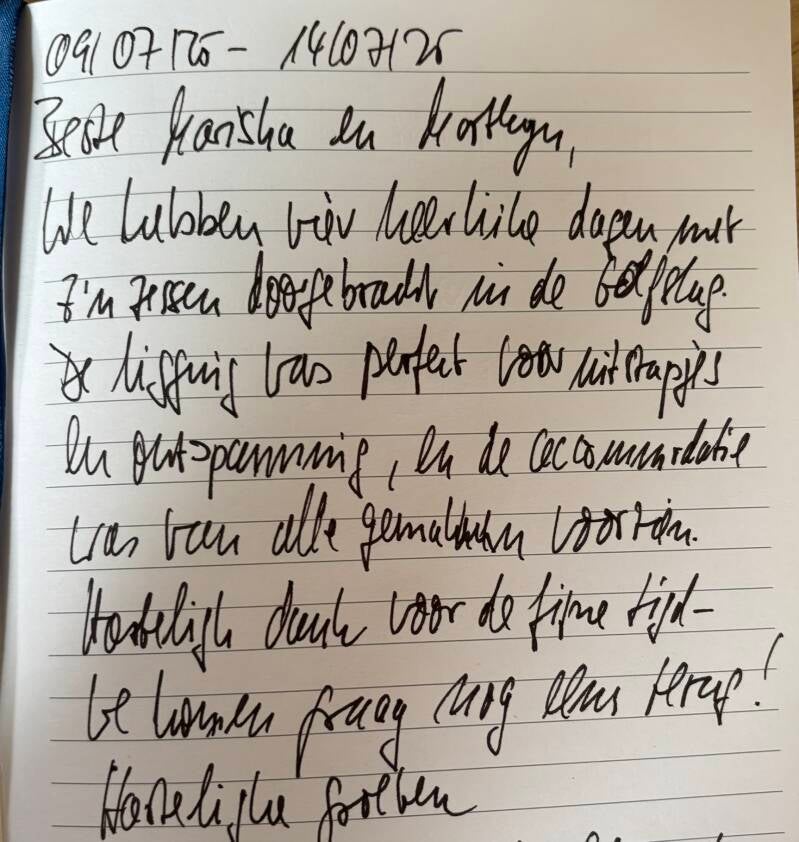 09/07/25 - 14/07/25
Beste Mariska en
We hebben vier heerlijke dagen met
z'n zessen doorgebracht in de Golfslag.
De ligging was perfect voor uitstapjes
en ontspanning, en de accommodatie
was van alle gemakken voorzien.
Hartelijk dank voor de fijne tijd-
we komen graag nog eens terug!
Hartelijke groeten